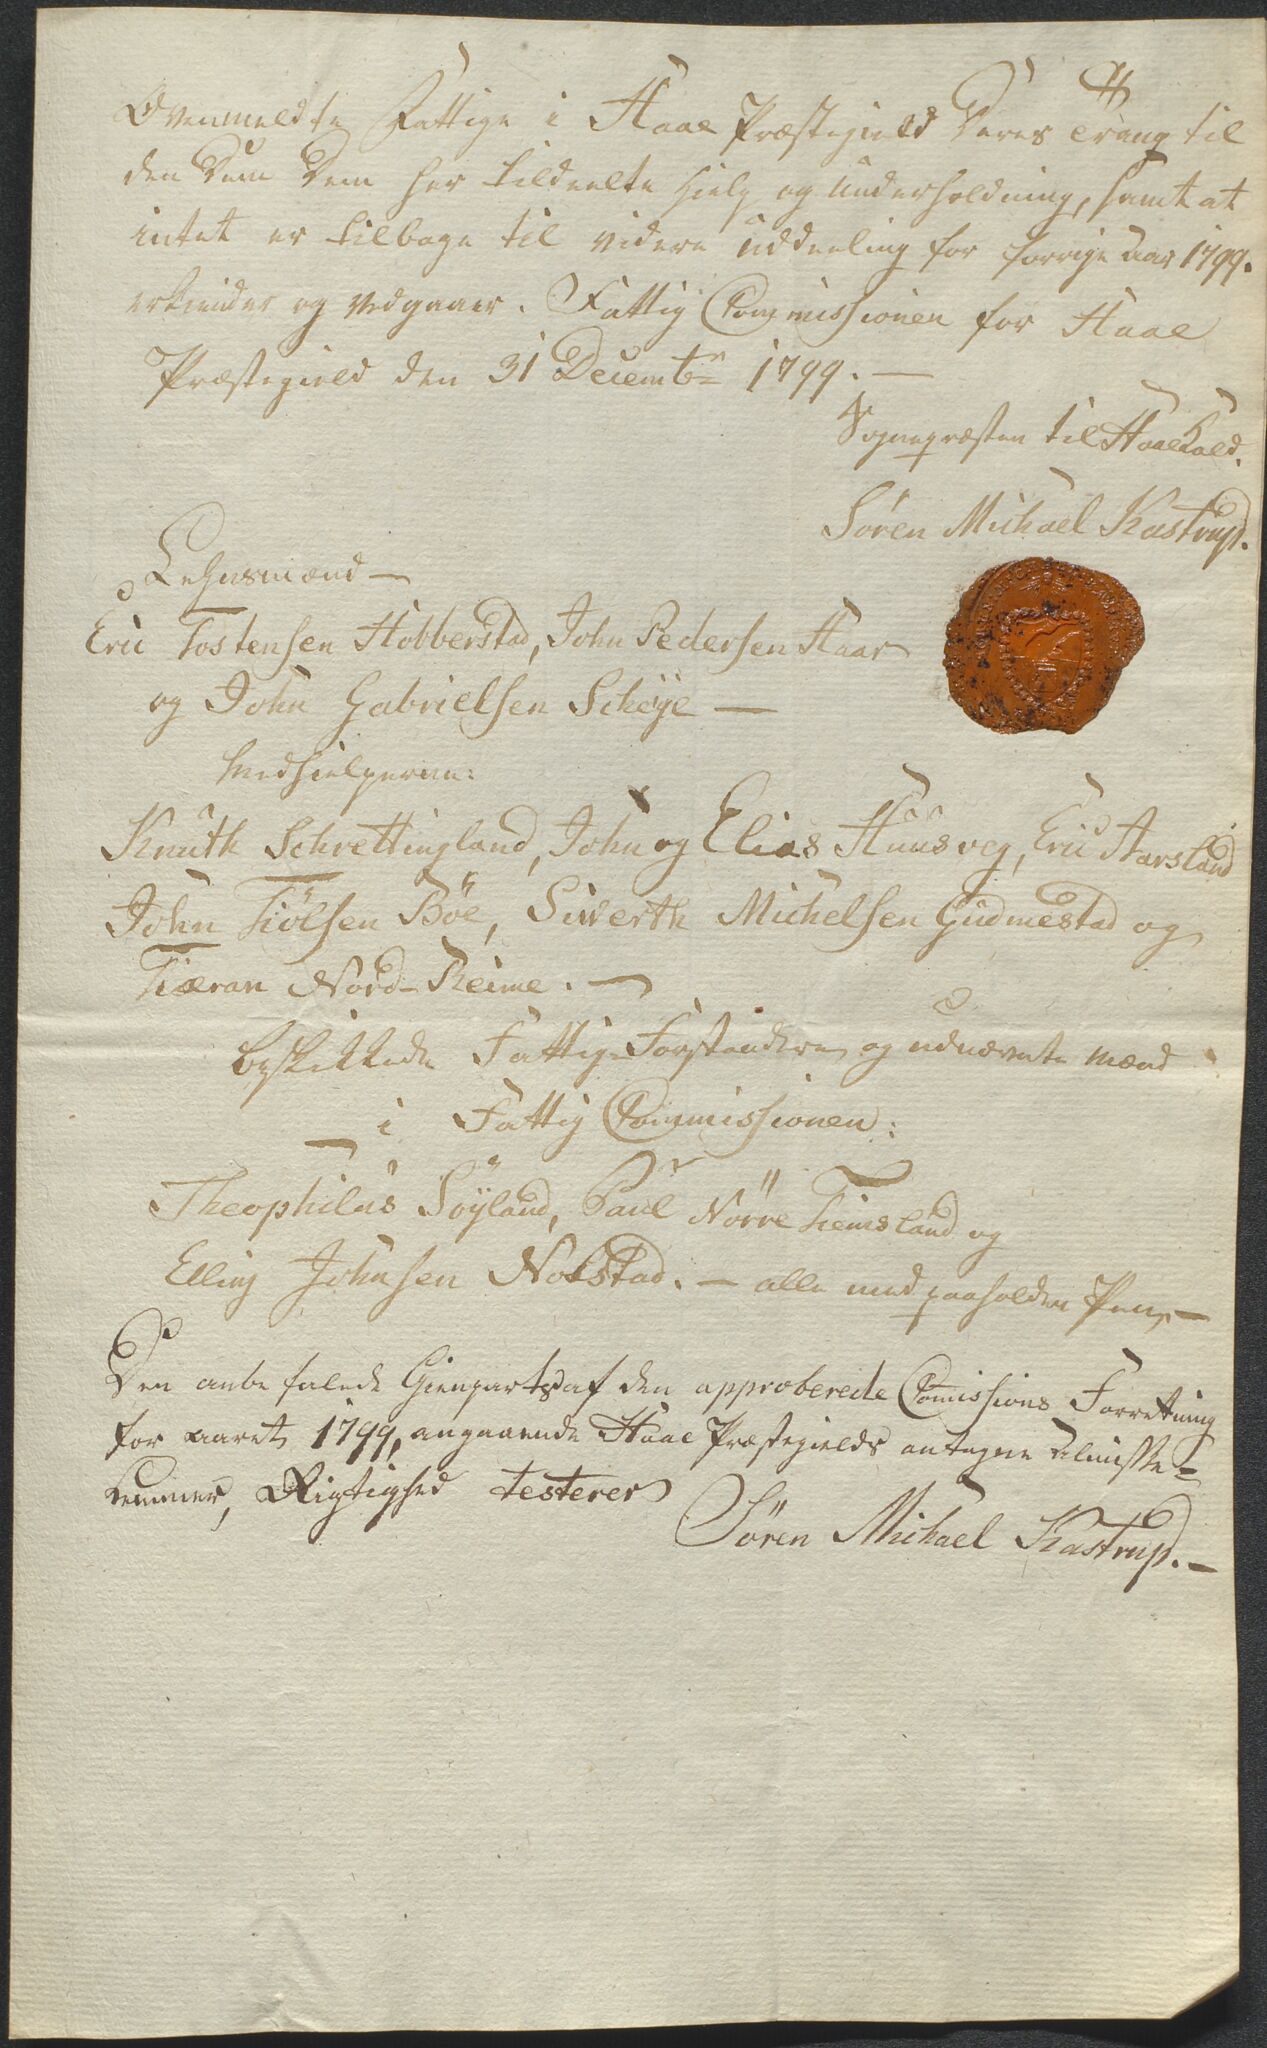 Ovenmeldte Fattige i Haae Præstegield Deres Trang til
den Dem her tildeelte Hielp og Underholdning, samt at
intet er tilbage til videre Uddeeling for forrige Aar 1799.
erkiender og vedgaaer. Fattig Commissionen for Haae
Præstegield den 31 Decembr 1799. —
Sognepræsten til Haae Kald.
Søren Michael Kastrup.
Lehnsmænd —
Eric Tostensen Hobberstad, John Pedersen Haar
og John Gabrielsen Scheÿe —
Medhielperne:
Knuth Schrettingland, John og Elias Huusveg, Eric Aarsland
John Tiölsen Böe, Siverth Michelsen Gudmestad og
Tiæran Nord-Reime. —
beskikkede Fattig-Forstandere og udnævnte Mænd
i Fattig Commissionen:
Theophilus Söÿland, Paul Nörre Tiemsland og
Elling Johnsen Nokstad. — alle med paaholden Pen, —
Den anbefalede Gienpart af den approberede Comissions Forretning
for Aaret 1799, angaaende Haae Præstegields antagne Almisse-
Lemmer, Rigtighed testerer
Søren Michael Kastrup. —